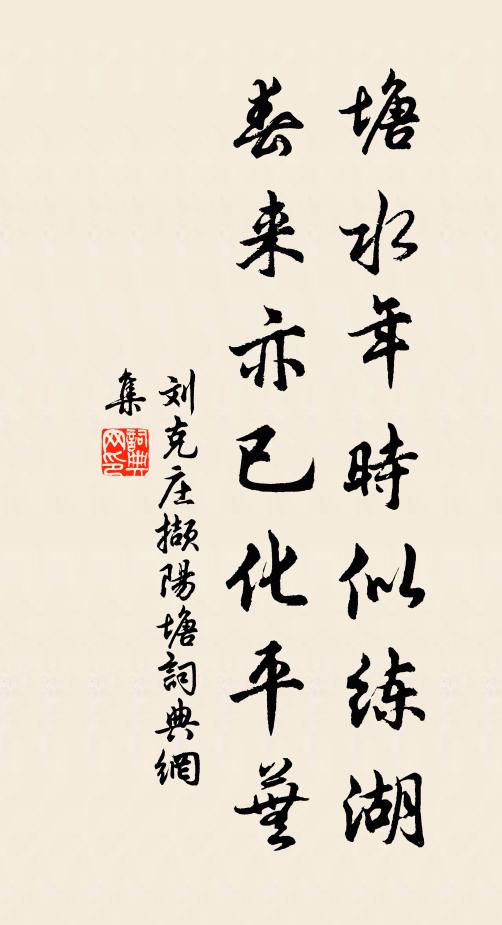 塘水年時似練湖
春来亦已化平蕪
刘克庄擷陽塘詞典網
集
詞典
网印